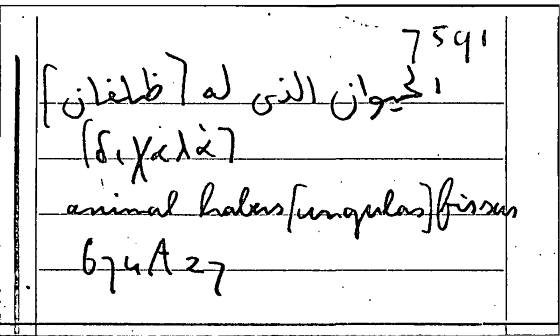 7591
الحيوان الذى له [ظلفان]
[διχαλά]
animal habens [ungulas] fissas
674A27